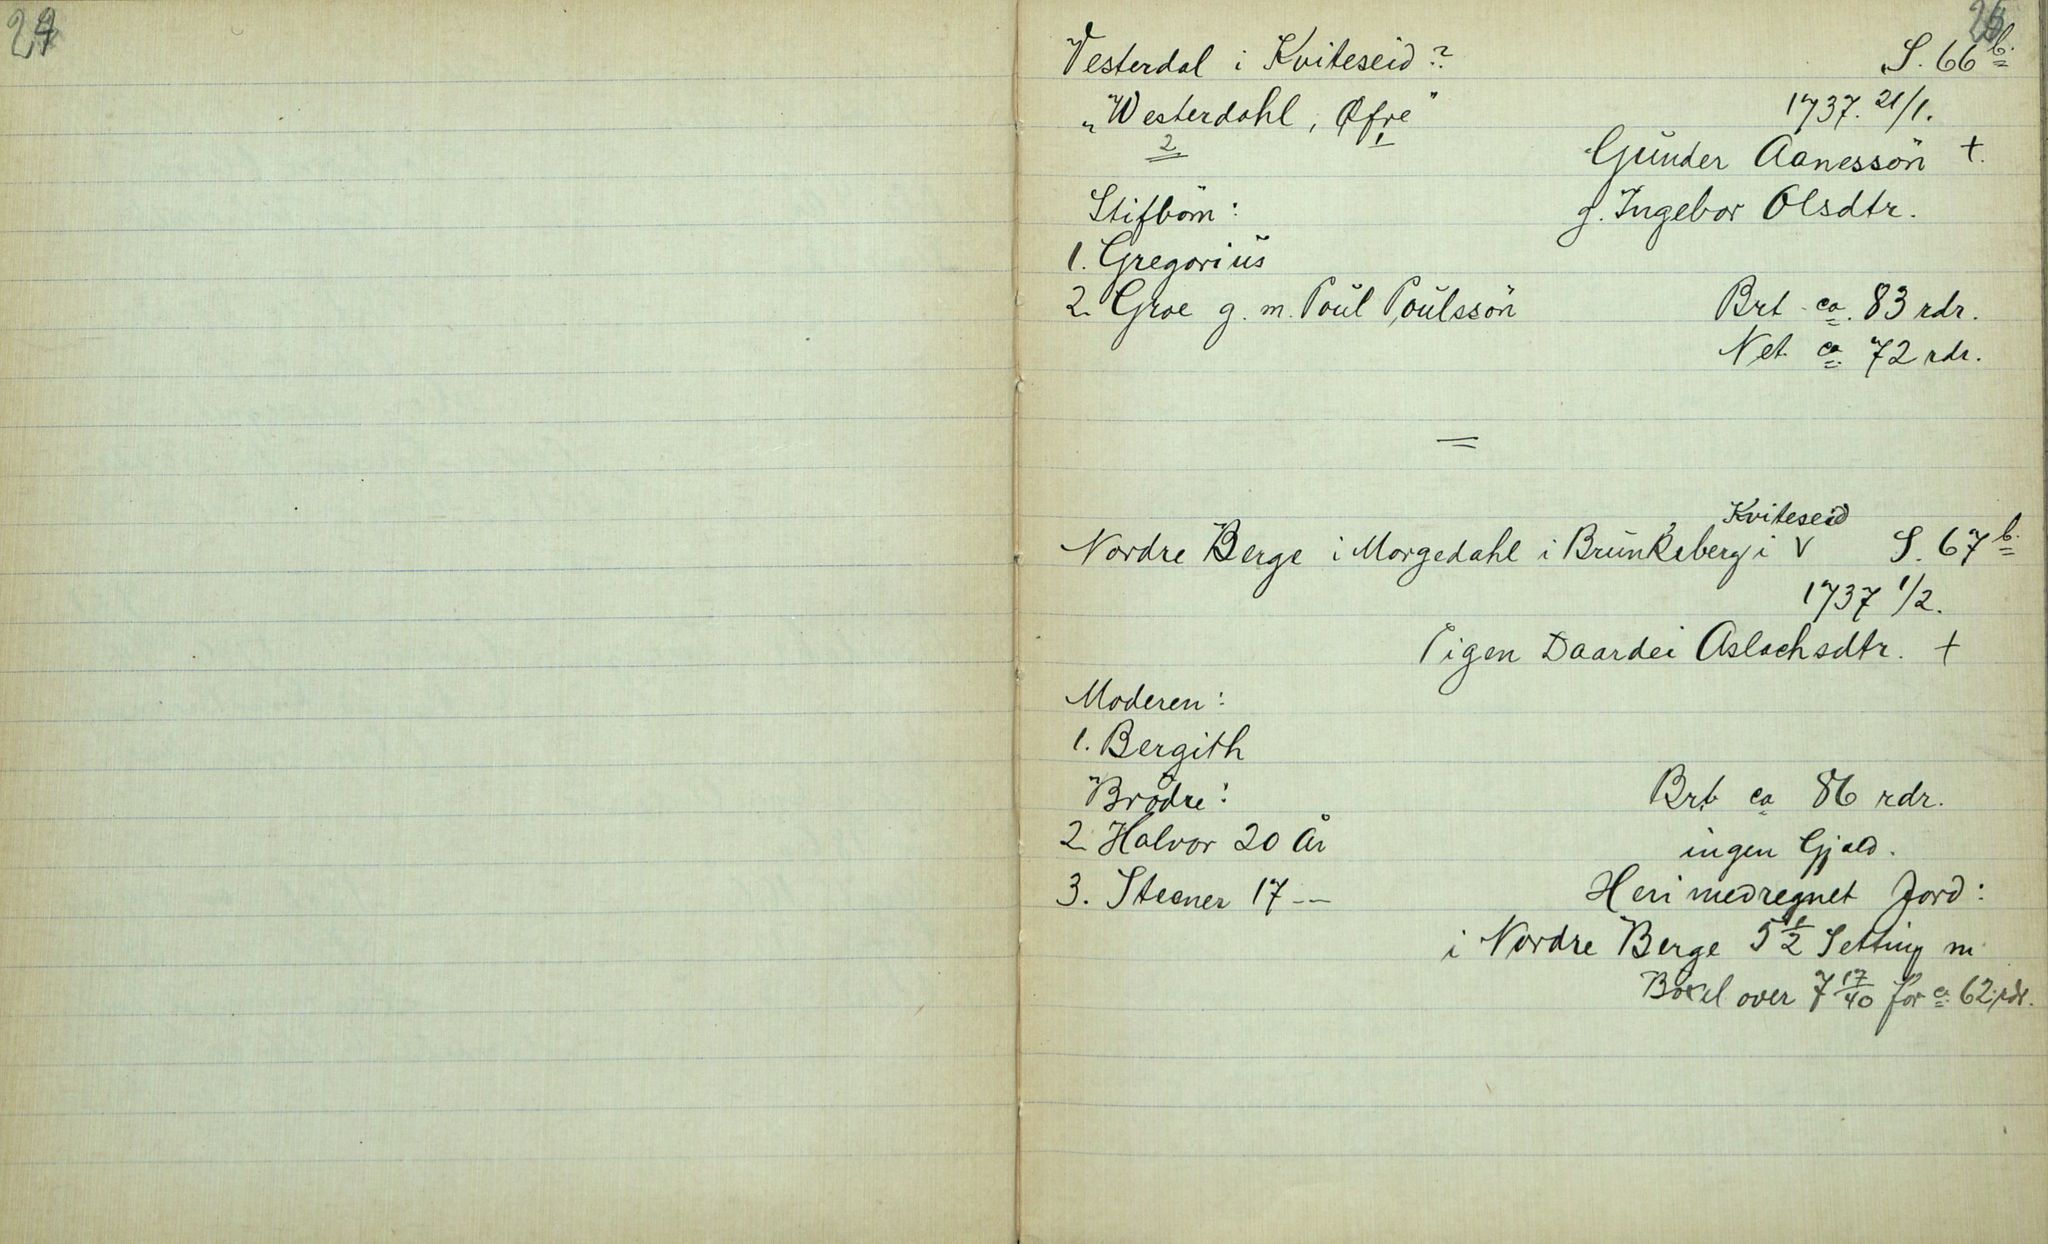 24
25
Vesterdal i Kviteseid? S. 66 b.
"Westerdahl, Øfre" 1737. 21/1.
2 1
Gunder Aanessön +.
Stifbörn: g. Ingebor Olsdtr.
1. Gregorius
2. Groe g. m. Poul Poulssön Brt ca. 83 rdr.
Net ca. 72 rdr.
=
Kviteseid
Nordre Berge i Morgedahl i Brunkeberg i V S. 67 b.
1737 1/2.
Pigen Daardei Aslachsdtr. +
Moderen:
1. Bergith
Brödre: Brt ca 86 rdr.
2. Halvor 20 År ingen Gjæld.
3. Steener 17 -- Heri medregnet Jord:
i Nordre Berge 5 1/2 Setting m
Böxel over 7 17/40 for ca. 62 rdr.